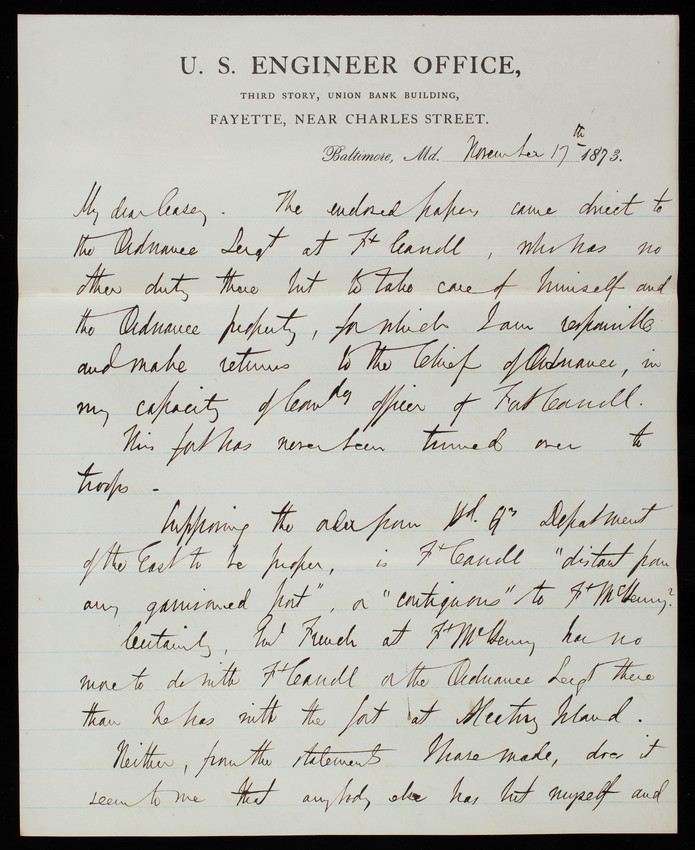 U. S. ENGINEER OFFICE,
THIRD STORY, UNION BANK BUILDING,
FAYETTE, NEAR CHARLES STREET.
Baltimore, Md. November 17th 1873.
My dear Casey. The enclosed papers came direct to
the Ordnance Sergt at Ft Carroll, who has no
other duty there but to take care of himself and
the Ordnance property, for which I am responsible
and make returns to the Chief of Ordnance, in
my capacity of Comdg officer of Fort Carroll.
This fort has never been turned over to
troops -
Supposing the order from Hd. Qrs Department
of the East to be proper, is Ft Carroll "distant from
any garrisoned post", or "contiguous" to Ft McHenry?
Certainly, French at Ft McHenry has no
more to do with Ft Carroll or the Ordnance Sergt there
than he has with the fort at Island.
Neither, from the statements I have made, does it
seem to me that anybody else has but myself and